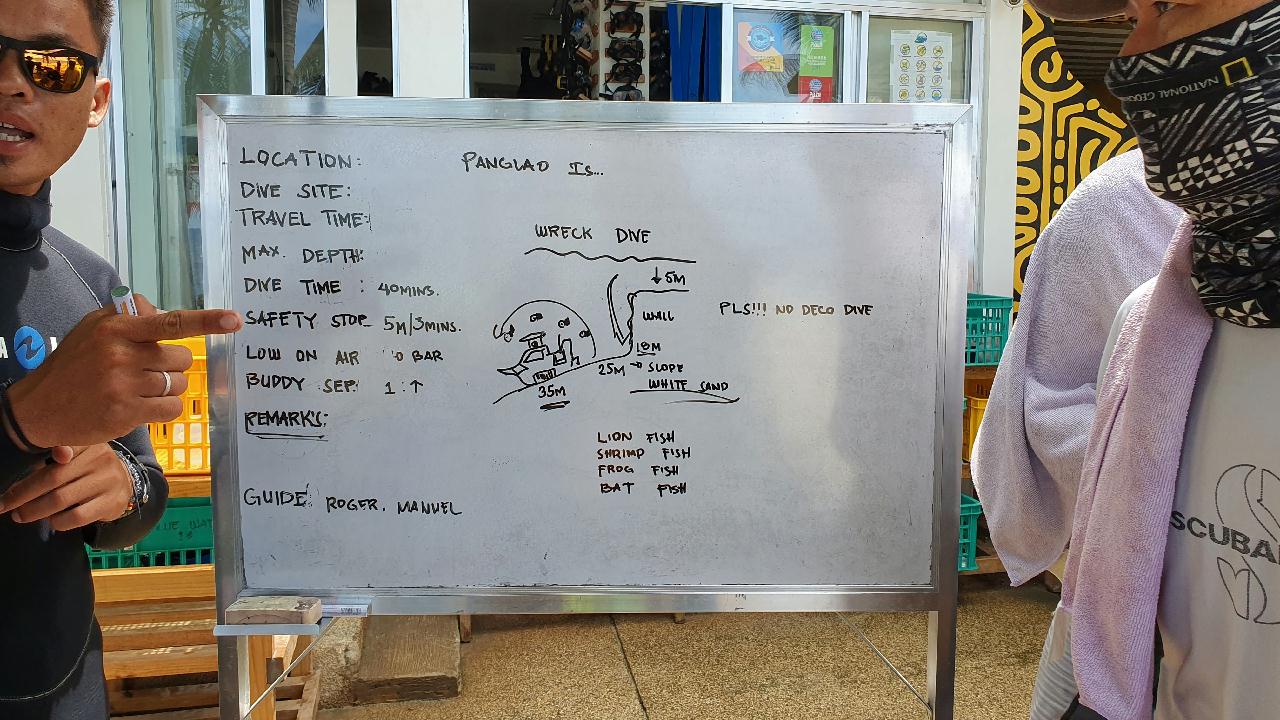 LOCATION: PANGLAO Is...
DIVE SITE:
TRAVEL TIME:
MAX. DEPTH:
DIVE TIME : 40MINS.
SAFETY STOP 5M/3MINS.
LOW ON AIR 0 BAR
BUDDY SEP: 1:↑
REMARK'S:
GUIDE: ROGER. MANUEL
WRECK DIVE
↓5M
WALL
18M
25M → SLOPE
WHITE SAND
35M
PLS!!! NO DECO DIVE
LION FISH
SHRIMP FISH
FROG FISH
BAT FISH
NATIONAL GEOG
SCUBA